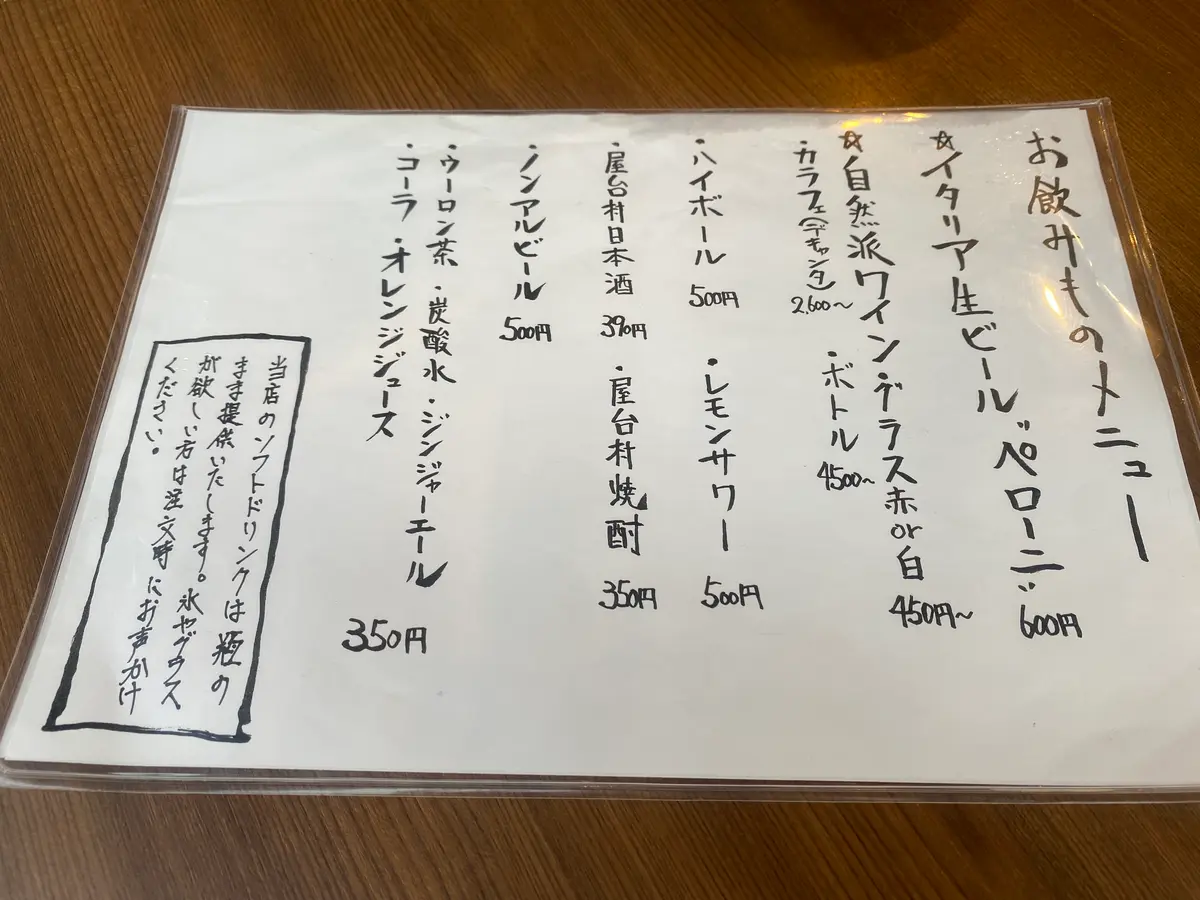 お飲みものメニュー
☆イタリア生ビール"ペローニ" 600円
☆自然派ワイン・グラス赤or白 450円~
・カラフェ(デキャンタ) 2,600~ ・ボトル 4500~
・ハイボール 500円 ・レモンサワー 500円
・屋台村日本酒 390円 ・屋台村焼酎 350円
・ノンアルビール 500円
・ウーロン茶 ・炭酸水 ・ジンジャーエール
・コーラ ・オレンジジュース 350円
当店のソフトドリンクは瓶の
まま提供いたします。氷やグラス
が欲しい方は注文時にお声かけ
ください。